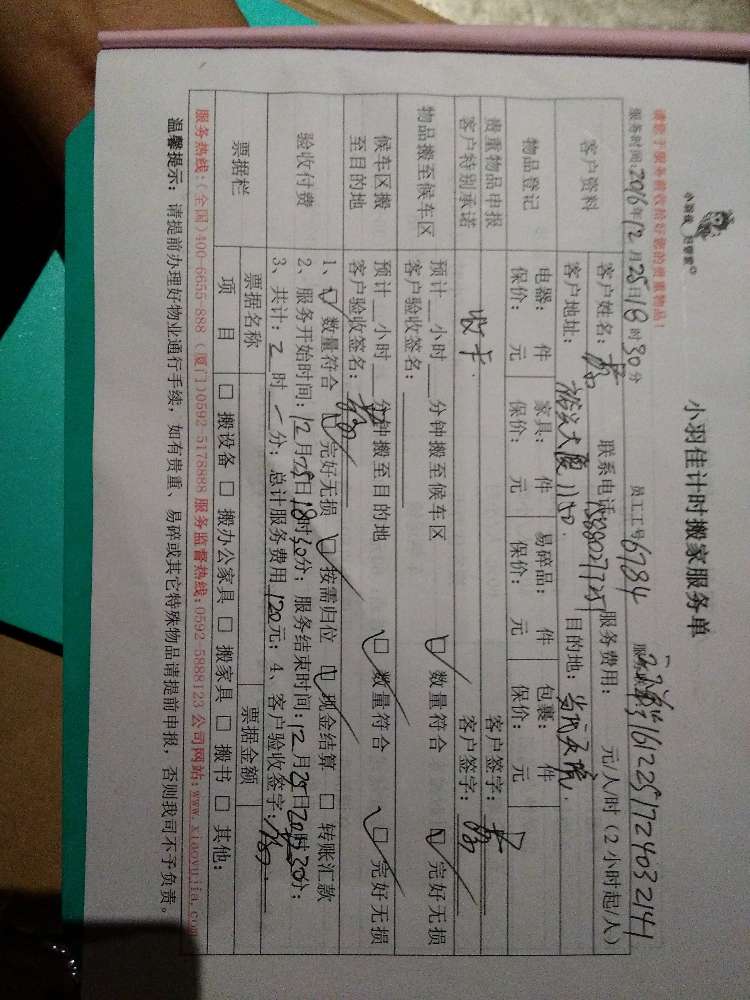 小羽佳计时搬家服务单
小羽佳 总管家
请您于服务前收拾好您的贵重物品!
服务时间:2016年12月25日18时30分 员工工号6784 161225172403214
客户资料 客户姓名: 联系电话 服务费用: 元/人/时(2小时起/人)
客户地址: 大厦1150. 目的地:
物品登记 电器: 件 家具: 件 易碎品: 件 包裹: 件
保价: 元 保价: 元 保价: 元 保价: 元
贵重物品申报 客户签字:
客户特别承诺 客户签字:
物品搬至候车区 预计__小时___分钟搬至候车区 数量符合 完好无损
客户验收签名:
候车区搬至目的地 预计__小时___分钟搬至目的地 数量符合 完好无损
客户验收签名:
验收付费 1、数量符合 完好无损 按需归位 现金结算 转账汇款
2、服务开始时间:12月25日18时30分; 服务结束时间:12月25日20时30分;
3、共计:2时一分; 总计服务费用120元; 4、客户验收签字:
票据栏 票据名称 票据金额
项 目 搬设备 搬办公家具 搬家具 搬书 其他:
服务热线:(全国)400-6655-888 (厦门)0592-5178888 服务监督热线:0592-5888123 公司网站:www.xiaoyujia.com
温馨提示: 请提前办理好物业通行手续, 如有贵重、易碎或其它特殊物品请提前申报, 否则我司不予负责。